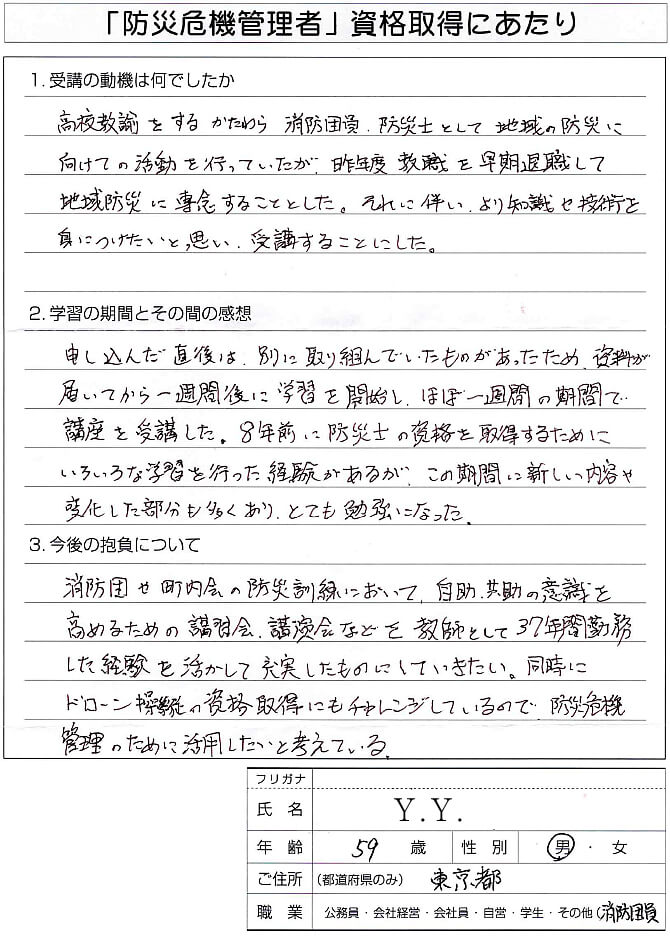 「防災危機管理者」資格取得にあたり
1. 受講の動機は何でしたか
高校教諭をするかたわら 消防団員、防災士として 地域の防災に
向けての活動を行っていたが、昨年度 教職を早期退職して
地域防災に専念することとした。それに伴い、より知識や技術を
身につけたいと思い、受講することにした。
2. 学習の期間とその間の感想
申し込んだ直後は、別に取り組んでいたものがあったため、資料が
届いてから一週間後に学習を開始し、ほぼ一週間の期間で
講座を受講した。8年前に防災士の資格を取得するために
いろいろな学習を行った経験があるが、この期間に新しい内容や
変化した部分も多くあり、とても勉強になった。
3. 今後の抱負について
消防団や町内会の防災訓練において、自助、共助の意識を
高めるための講習会、講演会などを教師として37年間勤務
した経験を活かして充実したものにしていきたい。同時に
ドローン操縦の資格取得にもチャレンジしているので、防災危機
管理のために活用したいと考えている。
フリガナ
氏名 Y.Y.
年齢 59 歳 性別 男・女
ご住所 (都道府県のみ) 東京都
職業 公務員・会社経営・会社員・自営・学生・その他(消防団員